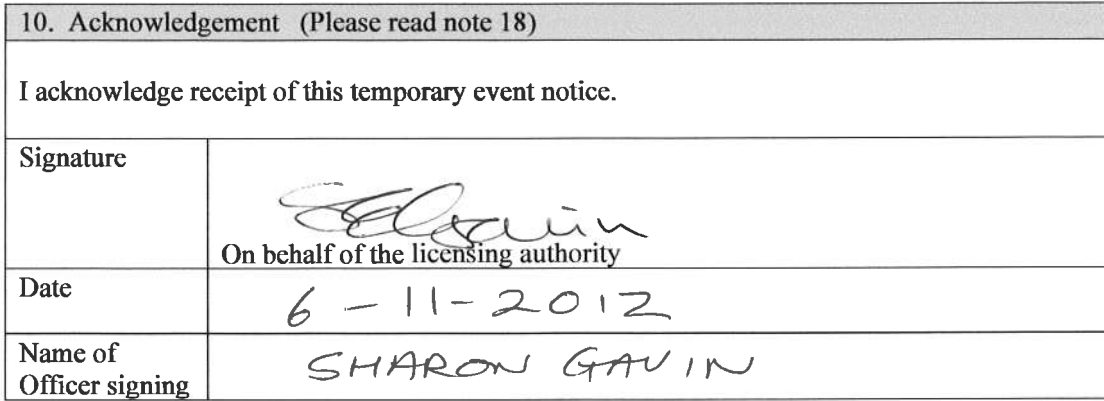 10. Acknowledgement (Please read note 18)
I acknowledge receipt of this temporary event notice.
Signature
On behalf of the licensing authority
Date
6-11-2012
Name of
Officer signing
SHARON GAVIN